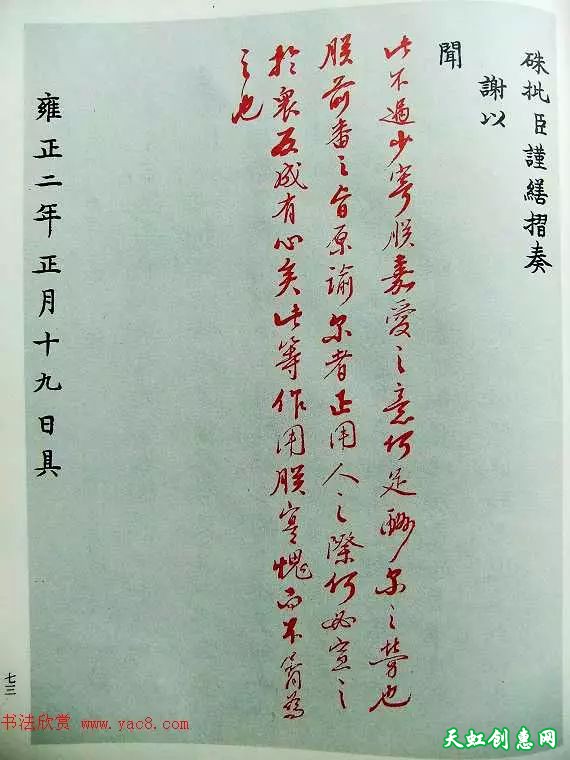 硃批臣謹繕摺奏
謝以
聞
此不過少寄朕嘉愛之意何足酬尔之勞也
朕前番之旨原諭尔者正用人之際何必宣之
於衆反成有心矣此等作用朕實愧而不肯爲
之也
雍正二年正月十九日具
七三
书法欣赏 www.yac8.com
天虹创惠网